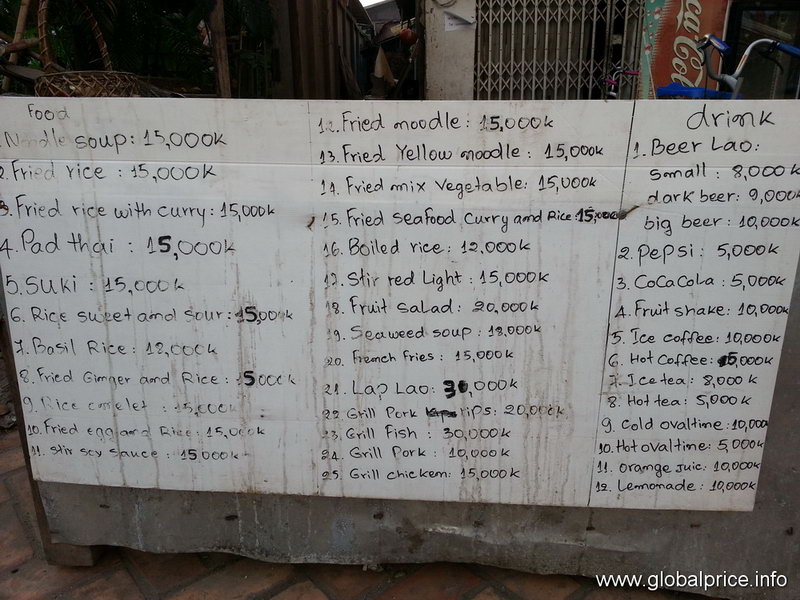 Food
Noodle soup: 15,000k
2. Fried rice : 15,000k
3. Fried rice with curry: 15,000k
4. Pad thai : 15,000k
5. SUKi : 15,000k
6. Rice sweet and sour: 15,000k
7. Basil Rice: 12,000k
8. Fried Ginger and Rice: 15000k
9. Rice omelet : 15,000k
10. Fried egg and Rice: 15,000k
11. Stir soy sauce : 15,000k
12. Fried noodle: 15,000k
13. Fried Yellow noodle : 15,000k
14. Fried mix vegetable: 15,000k
15. Fried seafood curry and Rice: 15,000k
16. Boiled rice: 12,000k
17. Stir red Light: 15,000k
18. Fruit Salad: 20,000k
19. Seaweed soup: 18,000k
20. French fries : 15,000k
21. Lap Lao: 30,000k
22. Grill Pork rips: 20,000k
23. Grill Fish : 30,000k
24. Grill Pork : 10,000k
25. Grill chicken: 15,000k
drink
1. Beer Lao:
Small : 8,000k
dark beer: 9,000k
big beer: 10,000k
2. Pepsi: 5,000k
3. CoCaCoLa: 5,000k
4. Fruit shake: 10,000k
5. Ice coffee: 10,000k
6. Hot Coffee: 5,000k
7. Ice tea: 8,000 k
8. Hot tea: 5,000k
9. Cold ovaltime: 10,000
10. Hot ovaltime: 5,000k
11. orange juic: 10,000k
12. Lemonade: 10,000k
www.globalprice.info